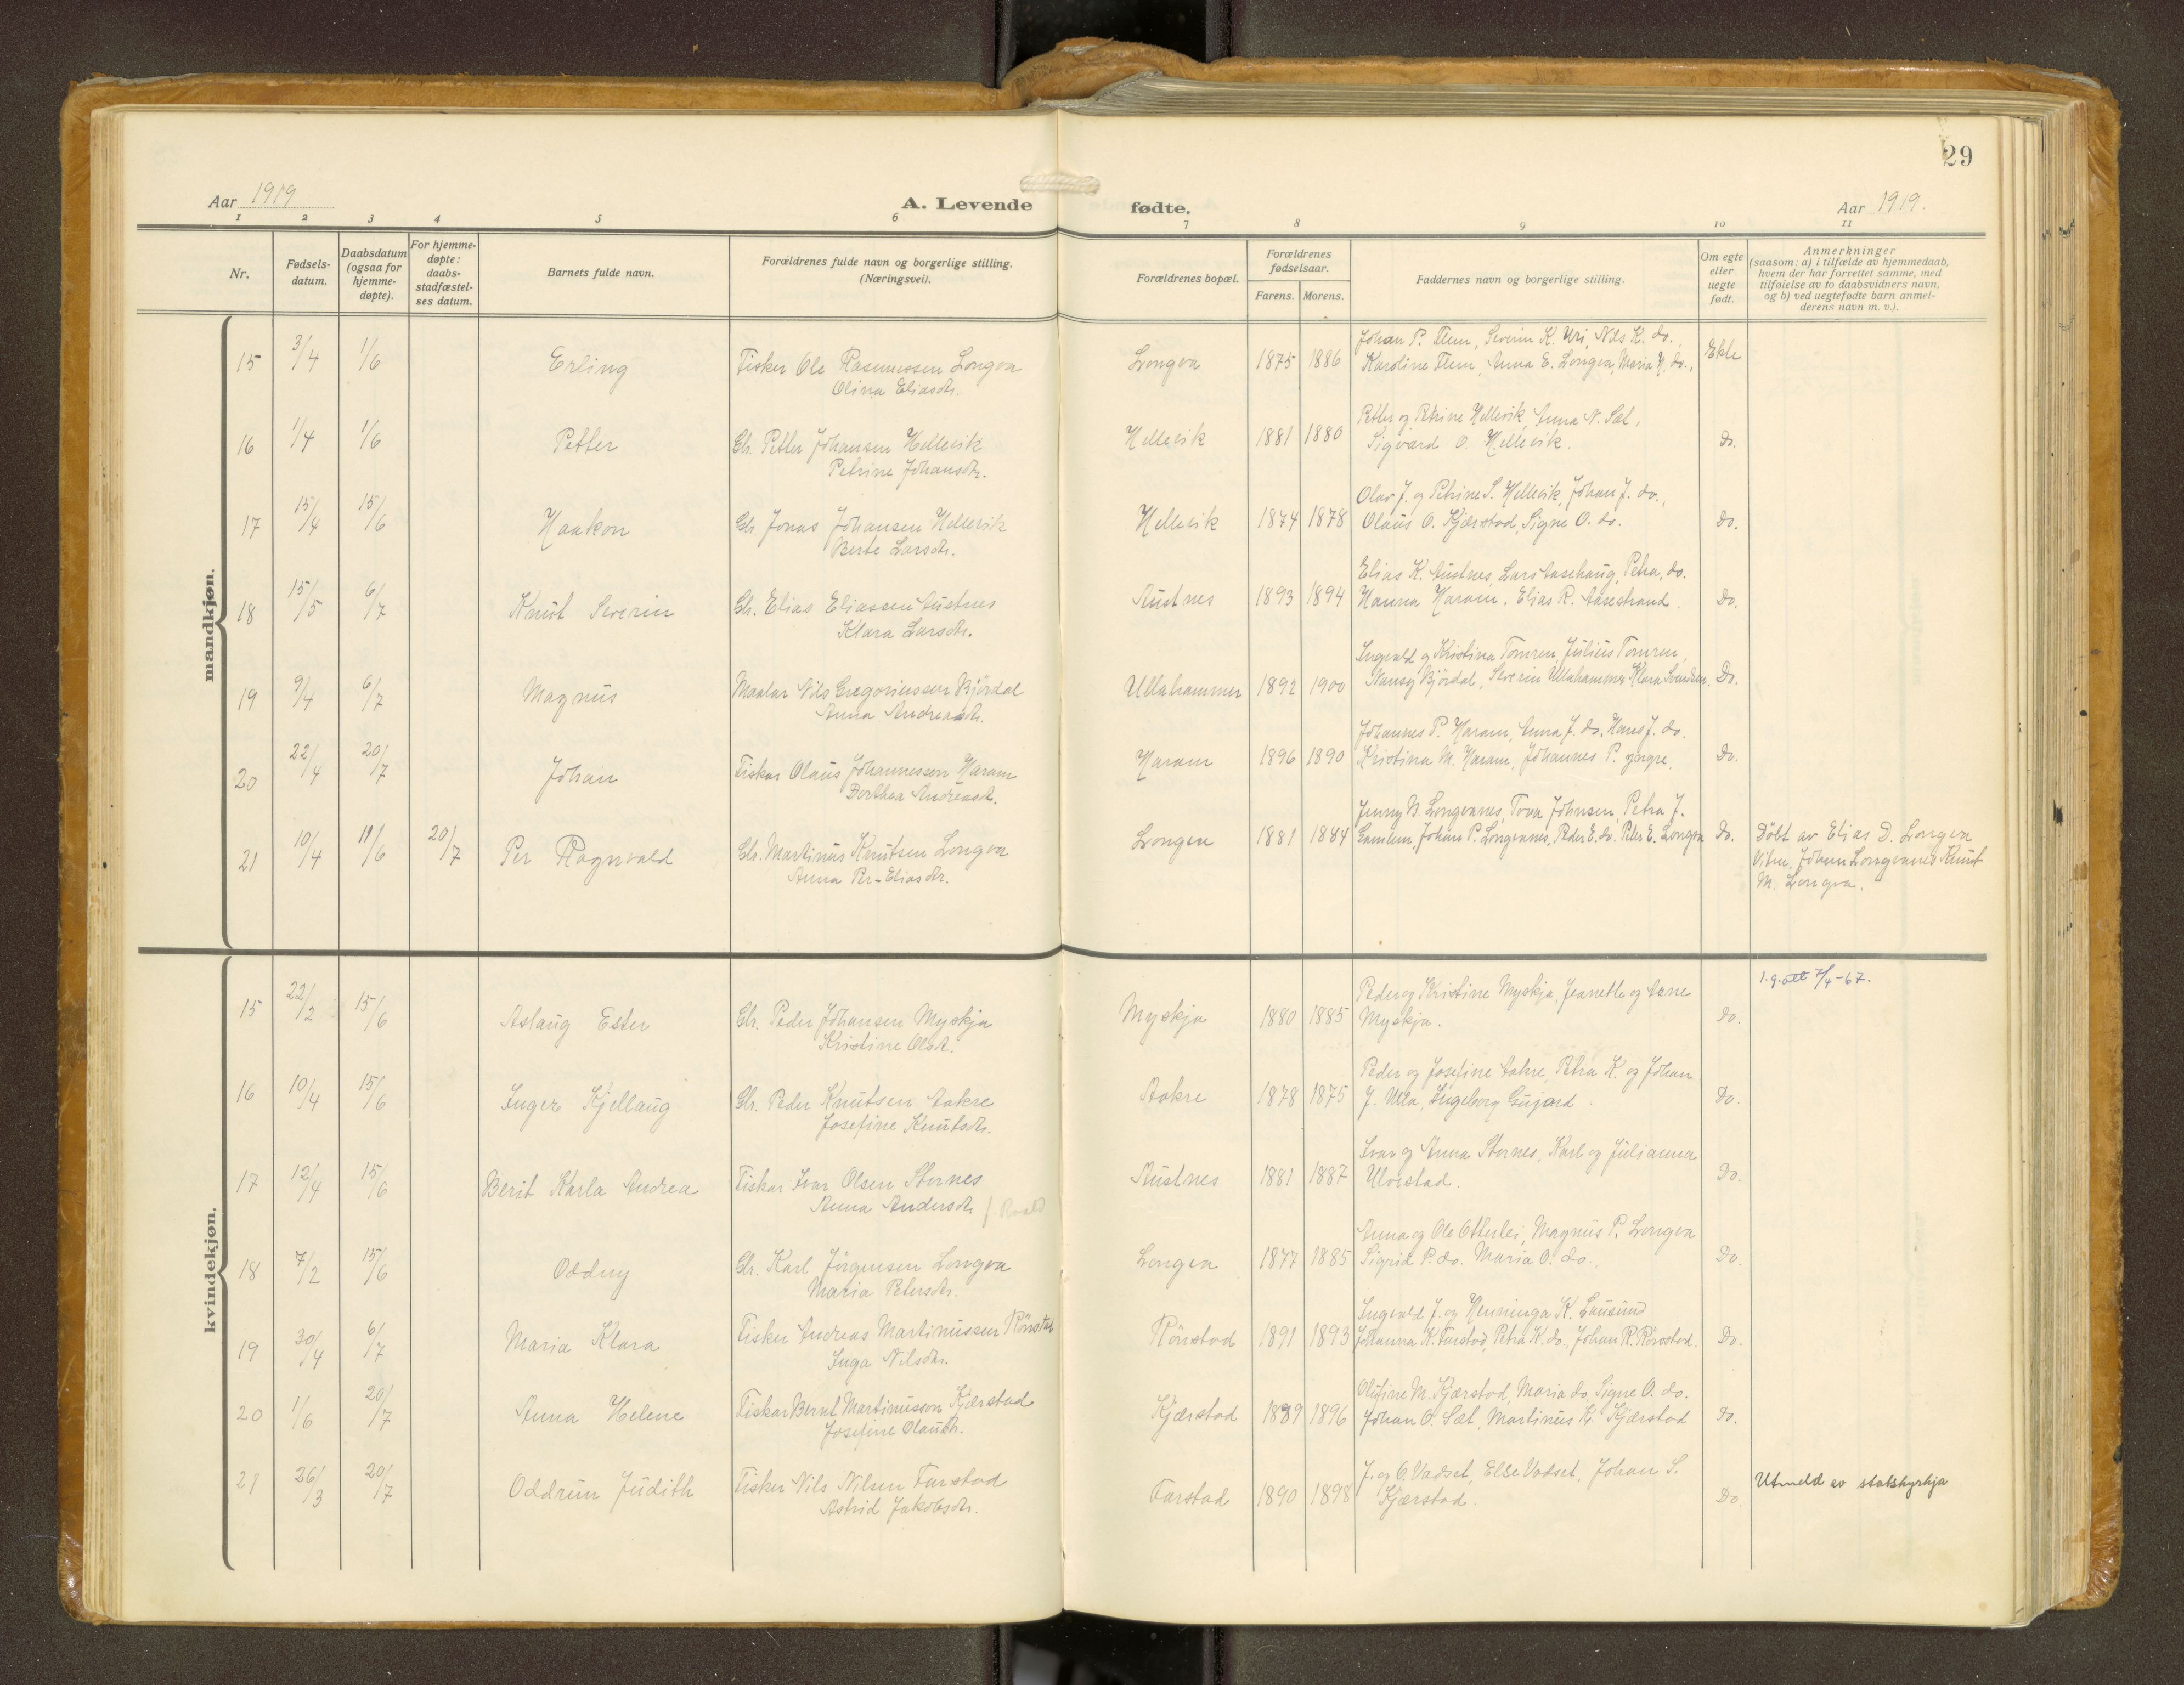 29
Aar 1919
A. Levende fødte.
Aar 1919.
1 2 3 4 5 6 7 8 9 10 11
Nr.
Fødsels-
datum.
Daabsdatum
(ogsaa for
hjemme-
døpte).
For hjemme-
døpte:
daabs-
stadfæstel-
ses datum.
Barnets fulde navn.
Forældrenes fulde navn og borgerlige stilling.
(Næringsvei).
Forældrenes bopæl.
Forældrenes
fødselsaar.
Farens. Morens.
Faddernes navn og borgerlige stilling.
Om egte
eller
uegte
født.
Anmerkninger
(saasom: a) i tilfælde av hjemmedaab,
hvem der har forrettet samme, med
tilføielse av to daabsvidners navn,
og b) ved uegtefødte barn anmel-
derens navn m. v.).
mandkjøn.
15 3/4 1/6 Erling Fisker Ole Rasmussen Longva
Olina Eliasdtr.
Longva 1875 1886
Johan P. Flem, Severin K. Uri, Nils K. do.,
Karoline Flem, Anna E. Longva, Maria N. do.,
Ekte
16 1/4 1/6 Petter Gbr. Petter Johansen Hellevik
Petrine Johansdtr.
Hellevik 1881 1880
Petter og Petrine Hellevik, Anna N. Sæt,
Sigvard O. Hellevik.
do.
17 15/4 15/6 Haakon Gbr. Jonas Johansen Hellevik
Berte Larsdtr.
Hellevik 1874 1878
Olav J. og Petrine S. Hellevik, Johan J. do.,
Olaus O. Kjærstad, Signe O. do.
Do.
18 15/5 6/7 Knut Severin Gbr. Elias Eliassen Austnes
Klara Larsdtr.
Austnes 1893 1894
Elias K. Austnes, Lars Aasehaug, Petra, do.
Hanna Haram, Elias R. Aasestrand.
Do.
19 9/4 6/7 Magnus Maalar Nils Gregoriussen Bjørdal
Anna Andreasdtr.
Ullahammer 1892 1900
Ingvald og Kristina Tomren, Julius Tomren,
Nansy Bjørdal, Severin Ullahammer, Klara Svendsen.
Do.
20 22/4 20/7 Johan Fiskar Olaus Johannessen Haram
Dorthea Andreasdt.
Haram 1896 1890
Johannes P. Haram, Anna J. do. Hans J. do.
Kristina M. Haram, Johannes P. yngre.
Do.
21 10/4 19/6 20/7 Per Ragnvald Gbr. Martinus Knutsen Longva
Anna Per-Eliasdtr.
Longva 1881 1884
Jenny B. Longvanes, Tova Johnsen, Petra J.
Gamlem, Johan P. Longvanes, Peder E. do. Peter E. Longva
Do.
Döbt av Elias D. Longva
Vitne. Johan Longvanes Knut
M. Longva.
kvindekjøn.
15 22/2 15/6 Aslaug Ester Gbr. Peder Johansen Myskja
Kristine Olsdt.
Myskja 1880 1885
Peder og Kristine Myskja, Jeanette og Aane
Myskja.
Do.
l.g.att 7/4-67.
16 10/4 15/6 Inger Kjellaug Gbr. Peder Knutsen Aakre
Josefine Knutsdtr.
Aakre 1878 1875
Peder og Josefine Aakre, Petra K. og Johan
J. Ulla, Ingeborg Gujord.
Do.
17 12/4 15/6 Berit Karla Andrea Fiskar Ivar Olsen Stornes
Anna Andersdtr. f. Roald
Austnes 1881 1887
Ivar og Anna Stornes, Karl og Julianna
Ulvestad.
Do.
18 7/2 15/6 Oddny Gbr. Karl Jörgensen Longva
Maria Petersdtr.
Longva 1877 1885
Anna og Ole Otterlei, Magnus P. Longva
Sigrid P. do. Maria O. do.
Do.
19 30/4 6/7 Maria Klara Fisker Andreas Martinussen Rönstad
Inga Nilsdtr.
Rönstad 1891 1893
Ingvald J. og Henninga K. Lausund
Johanna K. Farstad, Petra K. do., Johan R. Rönstad.
Do.
20 1/6 20/7 Anna Helene Fiskar Bernt Martinusson Kjærstad
Josefine Olausdtr.
Kjærstad 1889 1896
Olufine M. Kjærstad, Maria do. Signe O. do.
Johan O. Sæt, Martinus Kr. Kjærstad
Do.
21 26/3 20/7 Oddrun Judith Fisker Nils Nilsen Farstad
Astrid Jakobsdtr.
Farstad 1890 1898
J. og O. Vadset, Else Vadset, Johan S.
Kjærstad.
Do.
Utmeld av statskyrkja